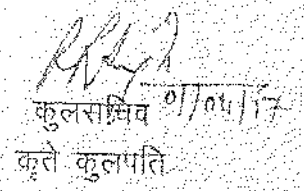 कुलसचिव 01/04/17
कृते कुलपति